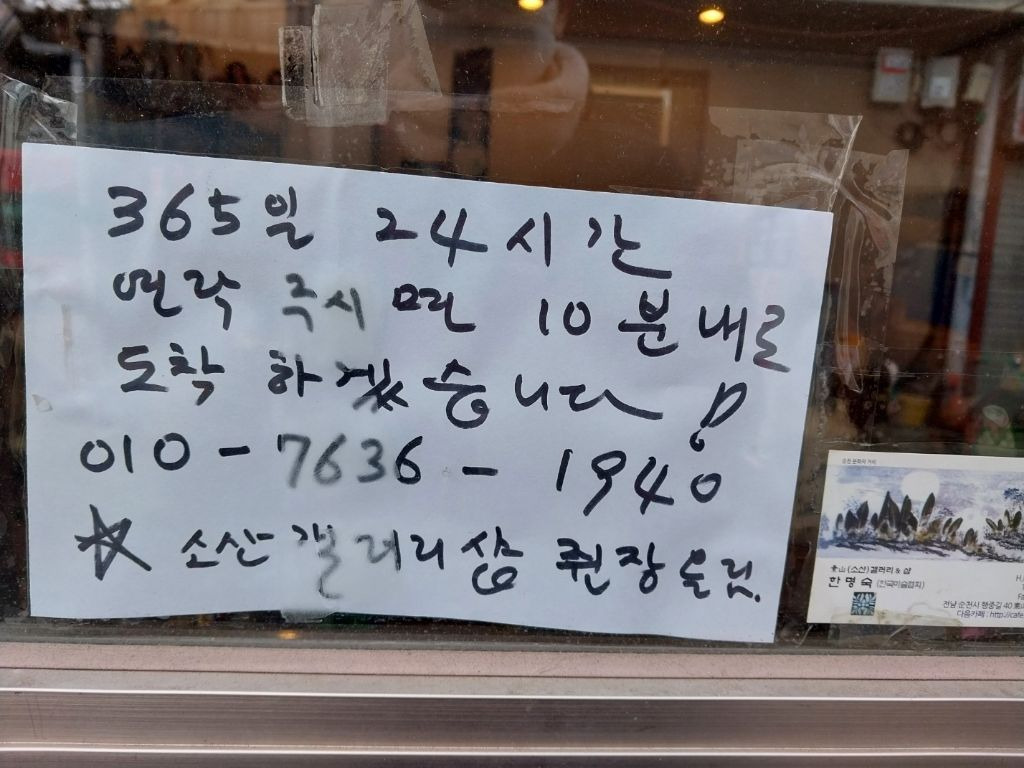 365일 24시간
연락 주시면 10분내로
도착 하겠습니다!
010-7636-1940
☆ 소산갤러리샾 쥔장올림.
순천 문화의 거리
(소산)갤러리 & 샵
한명숙
전남 순천시 행중길 40
다음카페 : http://cafe.